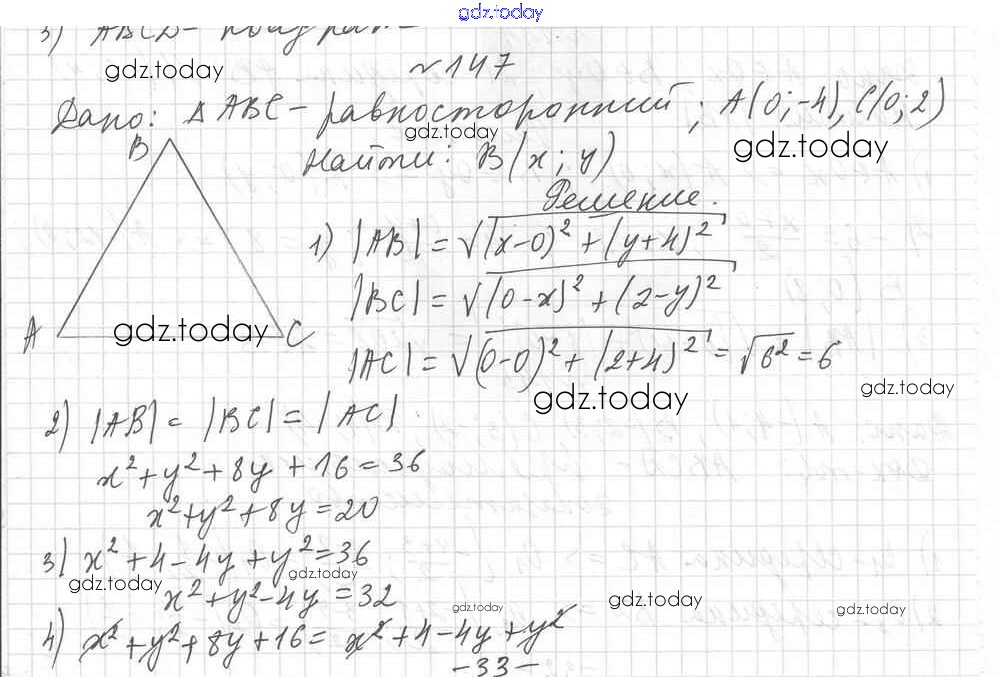 gdz.today
3) ABCD - квадрат
gdz.today
№147
Дано: Δ ABC - равносторонний; A(0;-4), C(0;2)
gdz.today
gdz.today
Найти: B(x;y)
Решение.
B
A
C
gdz.today
1) |AB| = √(x-0)² + (y+4)²
|BC| = √(0-x)² + (2-y)²
|AC| = √(0-0)² + (2+4)² = √6² = 6
gdz.today
gdz.today
2) |AB| = |BC| = |AC|
x² + y² + 8y + 16 = 36
x² + y² + 8y = 20
3) x² + 4 - 4y + y² = 36
gdz.today
gdz.today
x² + y² - 4y = 32
gdz.today
gdz.today
gdz.today
4) x² + y² + 8y + 16 = x² + 4 - 4y + y²
- 33 -